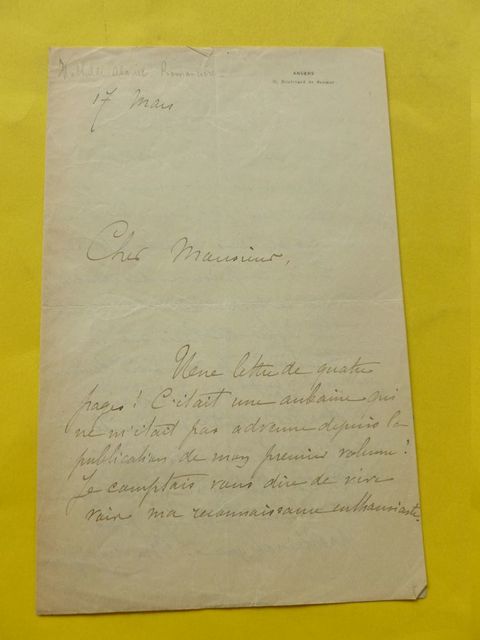 Romancière
ANGERS
Boulevard de Saumur
17 Mars
Cher Monsieur,
Une lettre de quatre
pages! C'était une aubaine qui
ne m'était pas advenue depuis la
publication de mon premier volume!
Je comptais vous dire de vive
voix ma reconnaissance enthousiaste